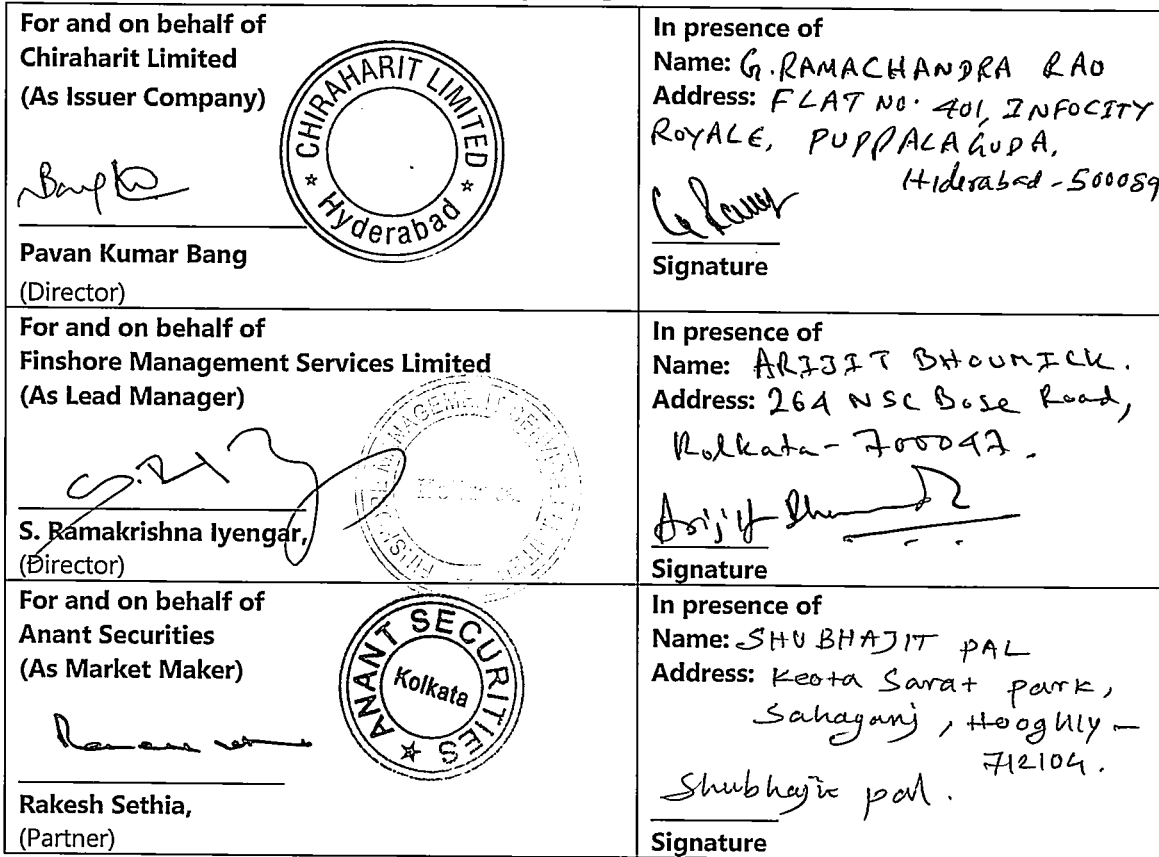 For and on behalf of
Chiraharit Limited
(As Issuer Company)
CHIRAHARIT LIMITED
Hyderabad
Pavan Kumar Bang
(Director)
In presence of
Name: G. RAMACHANDRA RAO
Address: FLAT NO. 401, INFOCITY
ROYALE, PUPPALAGUDA,
Hiderabad - 500089
Signature
For and on behalf of
Finshore Management Services Limited
(As Lead Manager)
S. Ramakrishna Iyengar,
(Director)
In presence of
Name: ARIJIT BHOUMICK.
Address: 264 NSC Bose Road,
Kolkata - 700047.
Signature
For and on behalf of
Anant Securities
(As Market Maker)
ANANT SECURITIES
Kolkata
Rakesh Sethia,
(Partner)
In presence of
Name: SHUBHAJIT PAL
Address: Keota Sarat park,
Sahaganj, Hooghly -
712104.
Shubhajit pal.
Signature